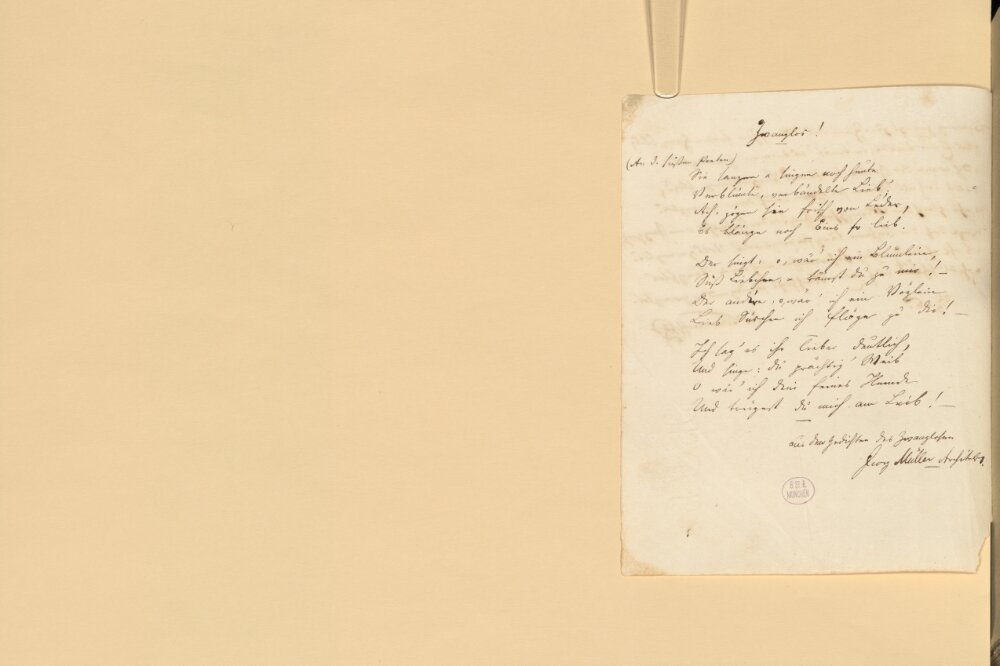 Zwanglos!
(An d. süßen Poeten)
Sie sangen u singen noch heute
Verblümte, verbändelte Lieb'
Ach, zögen sie frisch von Leder,
Es klänge noch Eins so lieb.
Der singt: o, wär' ich ein Blümlein,
Süß Liebchen, u kämst du zu mir! –
Der andere, o, wär' ich ein Vöglein
Lieb Süschen ich flöge zu dir! –
Ich sag' es ihr lieber deutlich,
Und singe: du prächtig' Weib
O wär' ich dein feines Hemde
Und trügest du mich am Leib! –
aus den Gedichten des Zwanglosen
Georg Müller Architekt.
B. ST. B.
MÜNCHEN